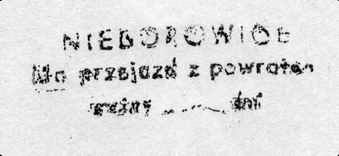 NIEBOROWICE
Na przejazd z powrotem
ważny dni